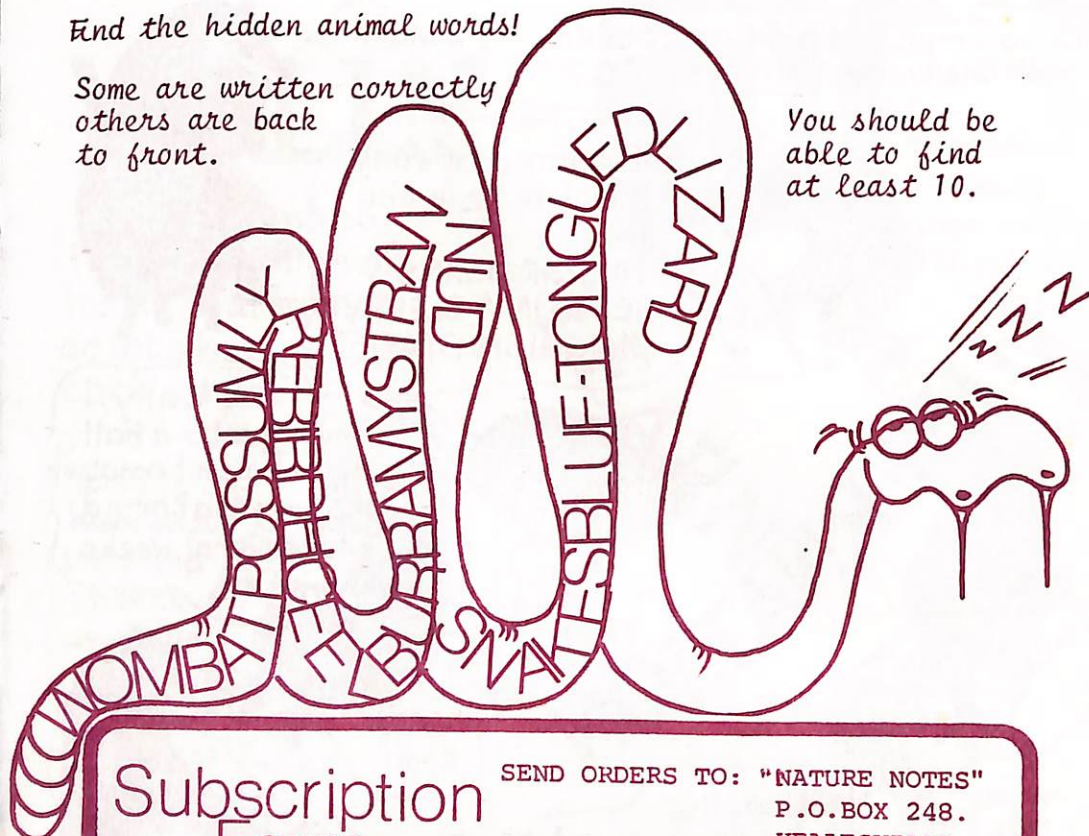 Find the hidden animal words!
Some are written correctly
others are back
to front.
You should be
able to find
at least 10.
WOMBATPOSSUMLYREBIRDHCEELBURRAMYSTRANNUDSNAKESBLUE-TONGUEDLIZARD
ZZZ
Subscription
SEND ORDERS TO: "NATURE NOTES"
P.O.BOX 248.